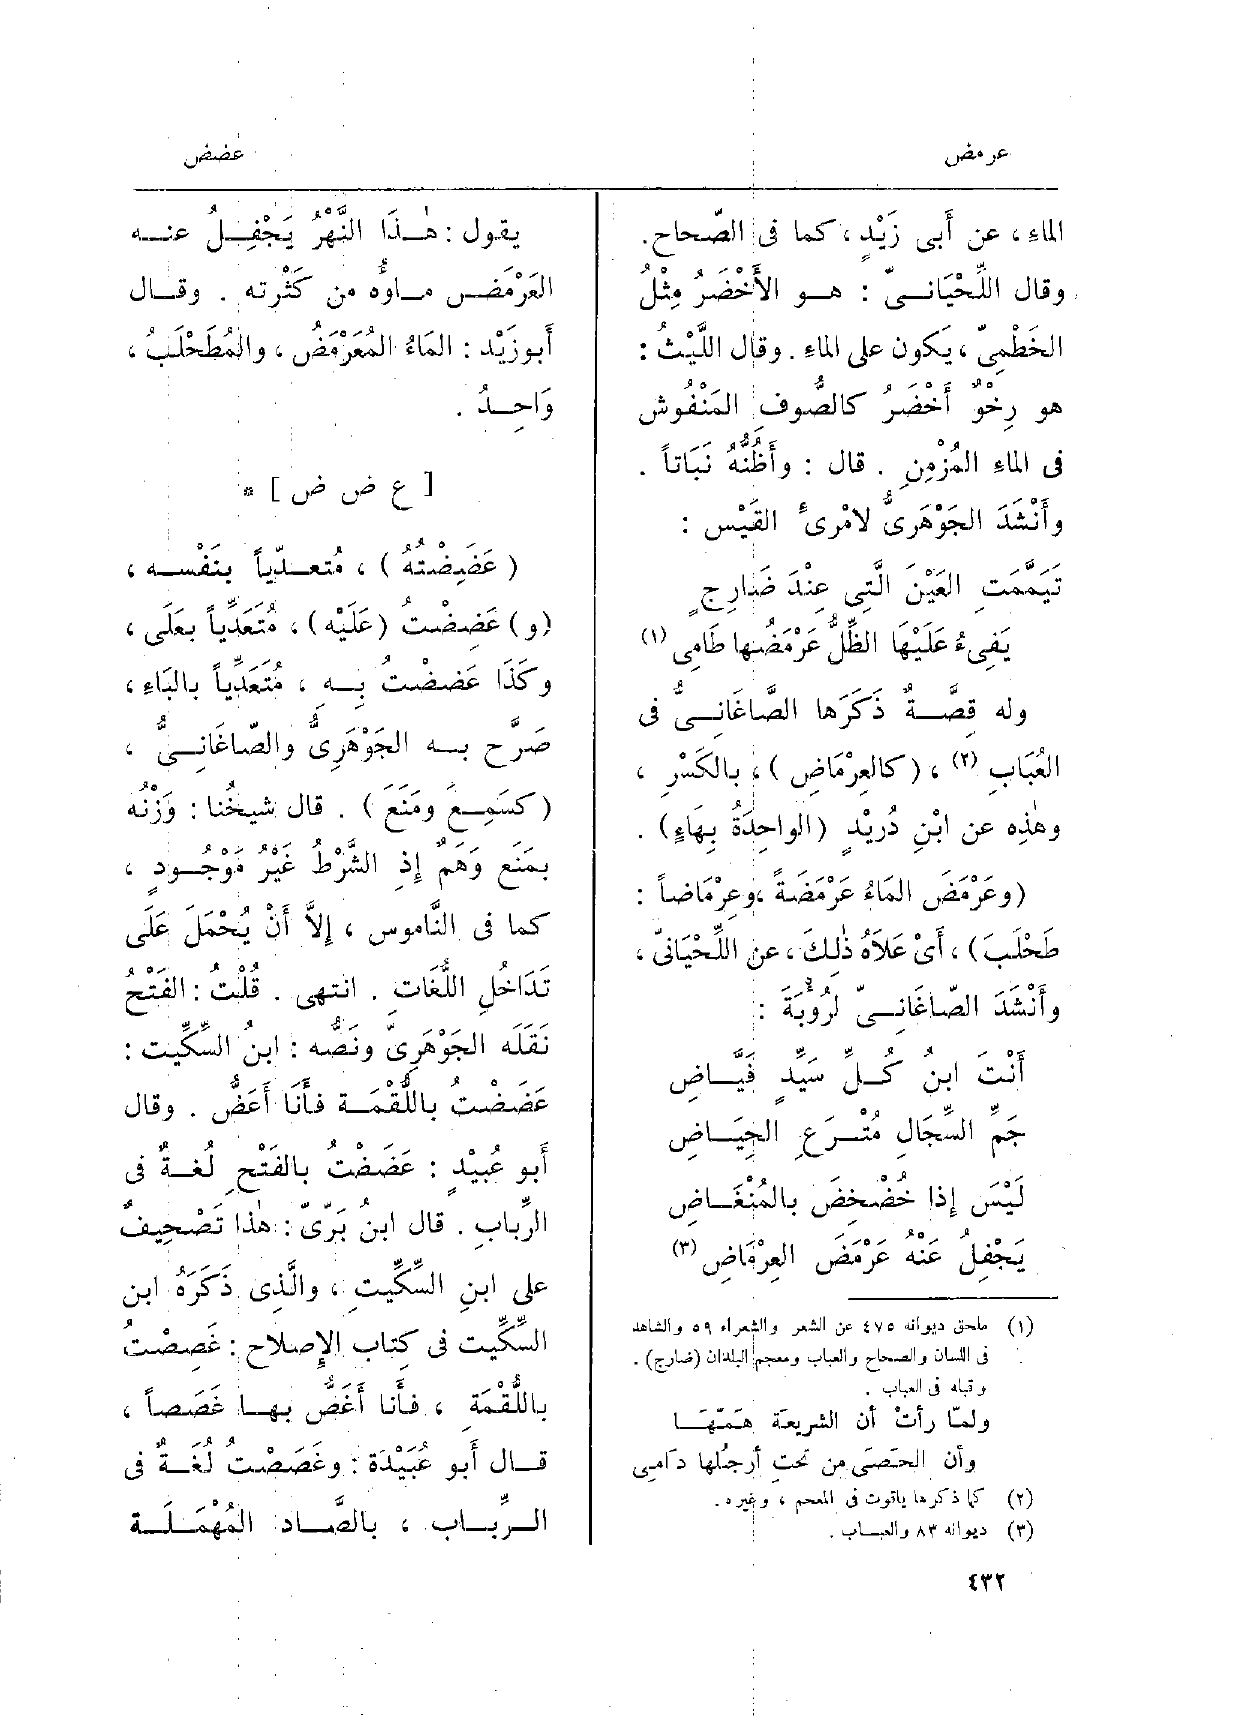 عرمض
عضض
الماء ، عن أَبى زَيْدٍ ، كما فى الصّحاح.
وقال اللِّحْيَانــىّ : هــو الأَخْضَرُ مِثْلُ
الخَطْمِىّ ، يَكون على الماءِ . وقال اللَّيْثُ :
هو رِخْوٌ أَخْضَرُ كالصُّوفِ المَنْفُوشِ
فى الماءِ المُزْمِنِ . قال : وأَظُنُّهُ نَبَاتاً .
وأَنْشَدَ الجَوْهَرِىُّ لامْرِئ القَيْسِ :
تَيَمَّمَتِ العَيْنَ الَّتِى عِنْدَ ضَارِجٍ
يَفِىءُ عَلَيْهَا الظِّلُّ عَرْمَضُها طَامِى (١)
وله قِصَّــةٌ ذَكَرَها الصَّاغَانــىُّ فى
العُبَابِ (٢) ، (كالعِرْمَاضِ) ، بالكَسْرِ ،
وهٰذِه عن ابْنِ دُرَيْدٍ (الواحِدَةُ بِهَاءٍ) .
(وعَرْمَضَ المَاءُ عَرْمَضَةً ،وعِرْمَاضاً :
طَحْلَبَ) ، أَىْ عَلاَهُ ذٰلِكَ ، عن اللِّحْيَانىّ ،
وأَنْشَدَ الصّاغَانِــىّ لرُؤبَةَ :
أَنْتَ ابن كُــلِّ سَيِّدٍ فَيَّــاضِ
جَمِّ السِّجَالِ مُتْــرَعِ الحِيَــاضِ
لَيْسَ إِذا خَضْخَضَ بالمُنْغَــاضِ
يَجْفِلُ عَنْهُ عَرْمَضَ العِرْمَاضِ (٣)
(١) ملحق ديوانه ٤٧٥ عن الشعر والشعراء ٥٩ والشاهد
فى اللسان والصحاح والعباب ومعجم البلدان (ضارج) .
وقبله فى العباب .
ولمّا رأتْ أن الشريعَة هَمّهَــا
وأن الحَصَى من تحتِ أرجُلها دَامِى
(٢) كما ذكرها ياقوت فى المعجم ، وغيره .
(٣) ديوانه ٨٣ والعبــاب .
يقول : هــٰذا النَّهْرُ يَجْفِــلُ عنــه
العَرْمَضَ مــاوُه من كَثْرته . وقــال
أَبوزَيْد : المَاءُ المُعَرْمَضُ ، والمُطَحْلَبُ ،
وَاحِــدٌ .
[ ع ض ض ] *
(عَضِضْتُهُ) ، مُتعــدّياً بنَفْســه ،
(و) عَضِضْتُ (عَلَيْه) ، مُتَعَدِّياً بعَلَى ،
وكَذَا عَضِضْتُ بِــه ، مُتَعَدِّياً بالبَاءِ ،
صَرَّح بــه الجَوْهَرِىُّ والصّاغَانــىُّ ،
(كسَمِــعَ ومَنَعَ) . قال شيخُنا : وَزْنُه
بمَنَع وَهَمٌ إِذِ الشَّرْطُ غَيْرُ مَوْجُــودٍ ،
كما فى النَّامُوسِ ، إِلاَّ أَنْ يُحْمَلَ عَلَى
تَدَاخُلِ اللُّغَاتِ . انتهى . قُلْتُ : الفَتْحُ
نَقَلَه الجَوْهَرِىّ ونَصُّه : ابنُ السِّكِّيت :
عَضَضْتُ باللُّقْمَــة فأَنا أَعَضُّ . وقال
أَبو عُبَيْدٍ : عَضَضْتُ بالفَتْحِ لُغَــةٌ فى
الرِّبابِ . قال ابنُ بَرِّىّ : هٰذا تَصْحِيفٌ
على ابنِ السِّكِّيتِ ، والَّذِى ذَكَرَهُ ابن
السِّكِّيت فى كِتَابِ الإِصلاحِ : غَصِصْتُ
باللُّقْمَةِ ، فأَنا أَغَصُّ بهــا غَصَصاً ،
قــال أَبو عُبَيْدَةَ : وغَصَصْتُ لُغَــةٌ فى
الــرِّبــاب ، بالصَّاد المُهْمَلَــة
٤٣٢